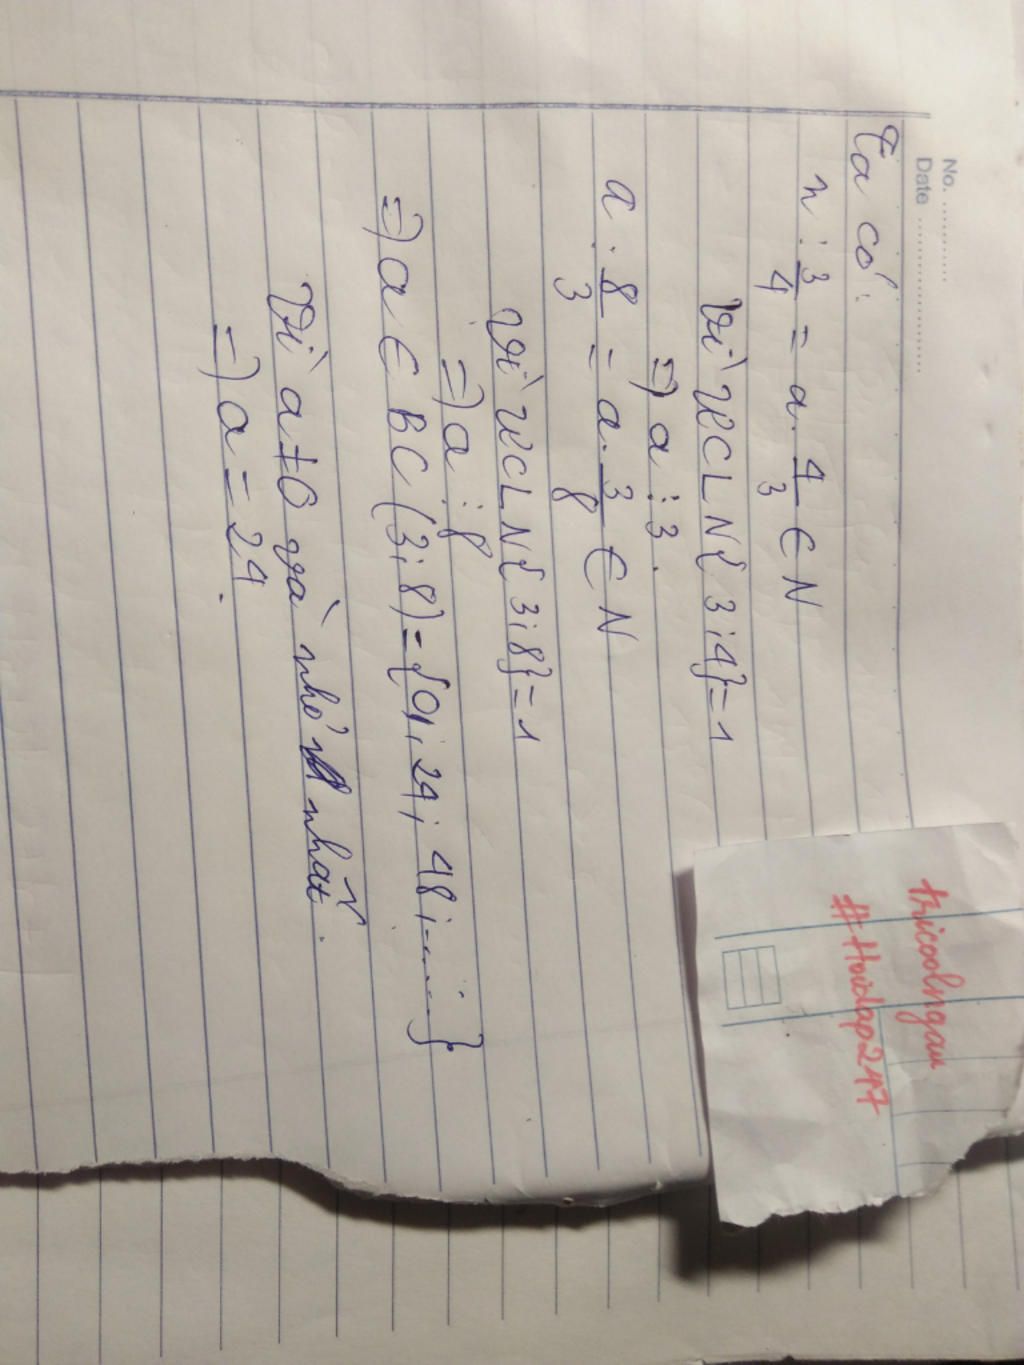 No. ............
Date ........................
Ta có:
n : 3/4 = a . 4/3 ∈ N
Vì ƯCLN{3;4}=1
=) a ⋮ 3.
a : 8/3 = a . 3/8 ∈ N
Vì ƯCLN{3;8}=1
=) a ⋮ 8
=) a ∈ BC(3;8)={0;24;48;.....}
Vì a≠0 và nhỏ nhất.
=) a = 24.
tricoolngau
#Hoidap247